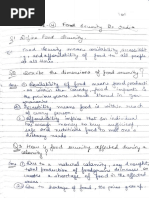 Food Security In India
Q1 Define Food Security.
Food Security means availability, accessibility
and affordability of food to all people
at all times.
Q2 Describe the dimensions of food security?
Ans (i) Availability of food means food production
within the country, food imports and
the previous years stock stored in
(ii) Accessibility means food is within reach
of every person.
(iii) Affordability implies that an individual
has enough money to buy sufficient,
safe and nutritious food to meet one's
dietary needs.
Q3 How is food security affected during a
calamity?
Ans (i) Due to a natural calamity, say drought,
total production of foodgrains decreases. It
creates a shortage of food in the affected
areas.
(ii) Due to shortage of food, the prices goes